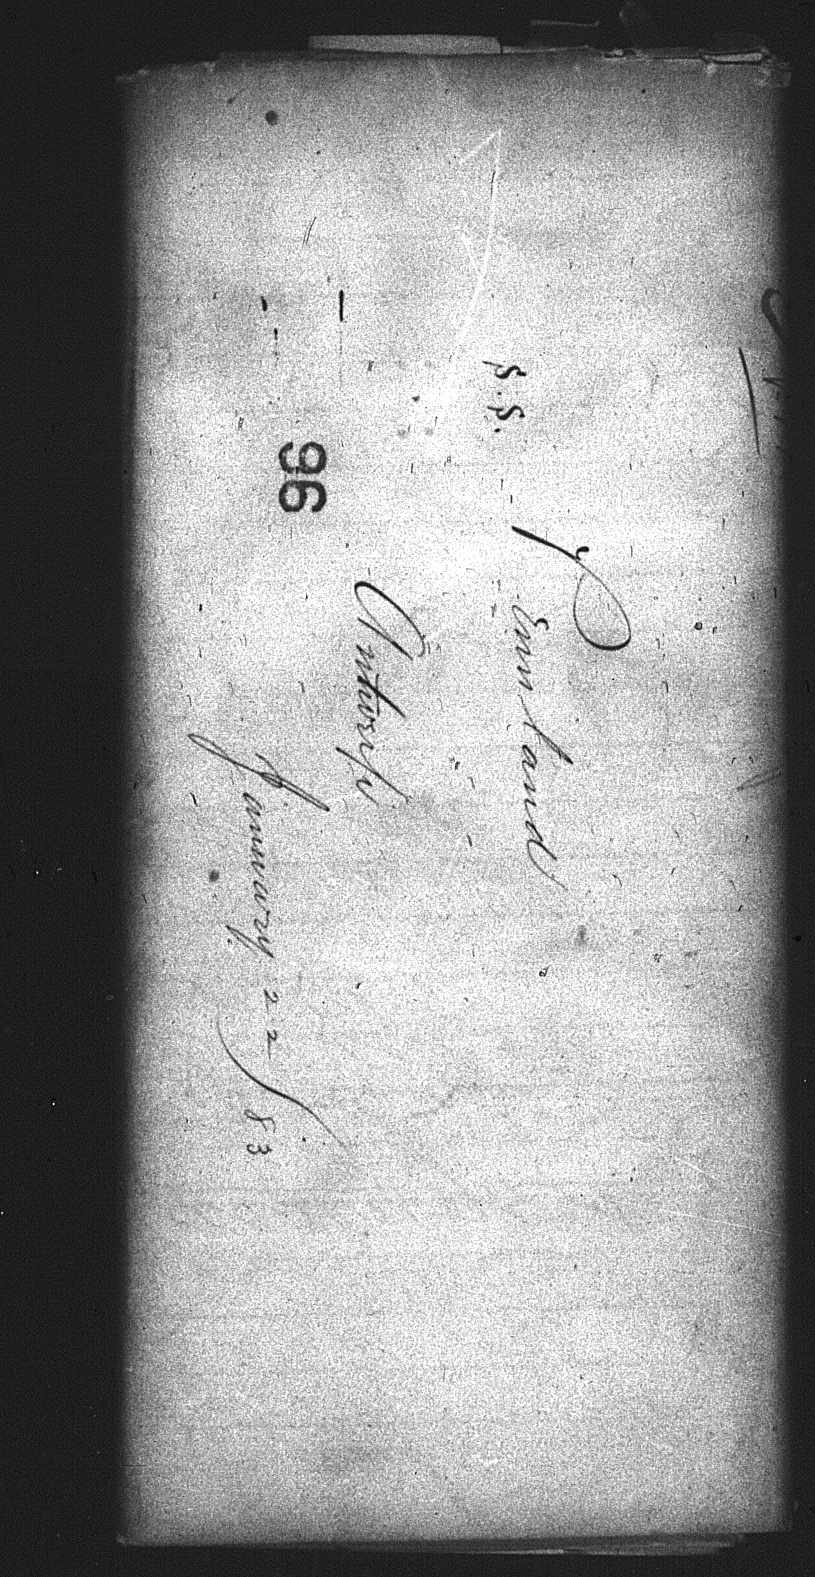 S.S.
Pennland
Antwerp
January 22/83
96